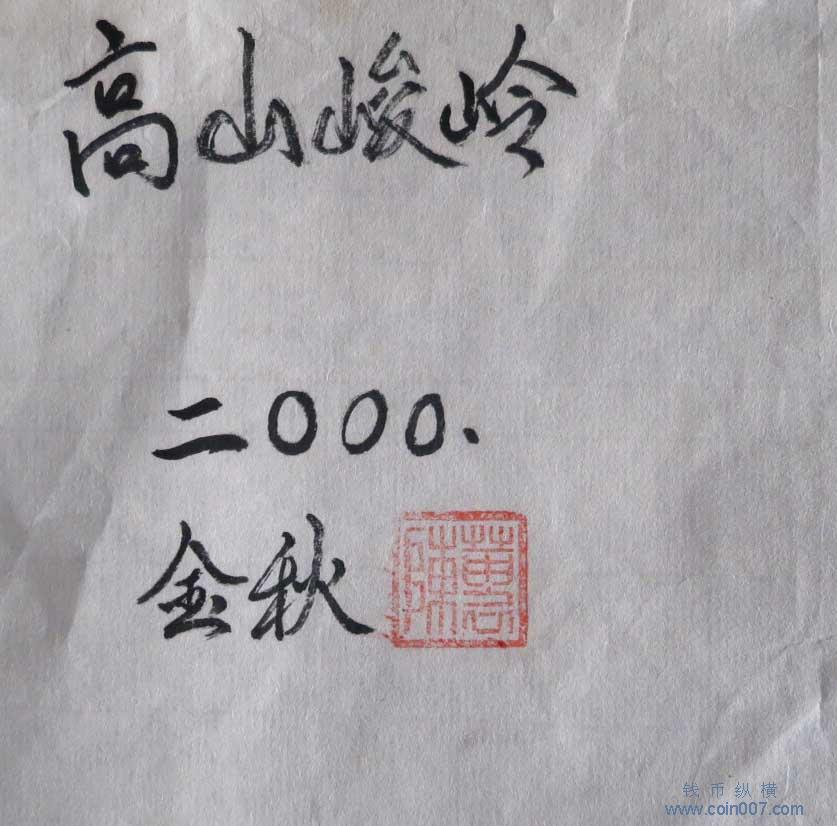 高山峻岭
二〇〇〇.
金秋
钱币纵横
www.coin007.com